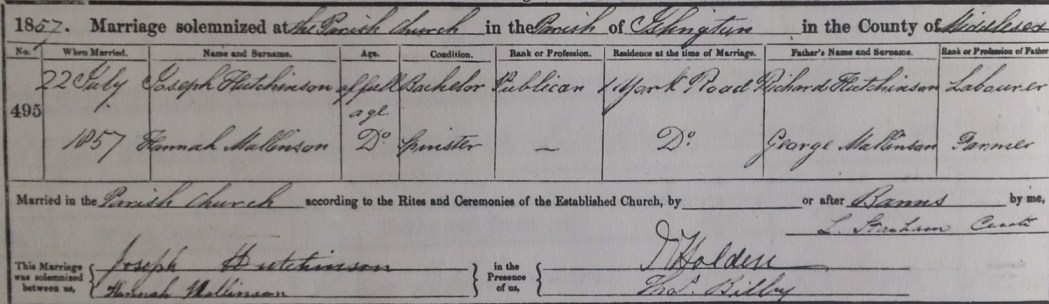 1857. Marriage solemnized at the Parish Church in the Parish of Islington in the County of Middlesex
No. When Married. Name and Surname. Age. Condition. Rank or Profession. Residence at the time of Marriage. Father's Name and Surname. Rank or Profession of Father
22 July Joseph Hutchinson of full age Bachelor Publican 1 York Road Richard Hutchinson Labourer
495
1857 Hannah Mallinson Do Spinster — Do Goarge Mallinson Farmer
Married in the Parish Church according to the Rites and Ceremonies of the Established Church, by or after Banns by me,
L. Curate
This Marriage was solemnized between us, Joseph Hutchinson in the Presence of us, J Holden
Hannah Mallinson Thos. Bilby